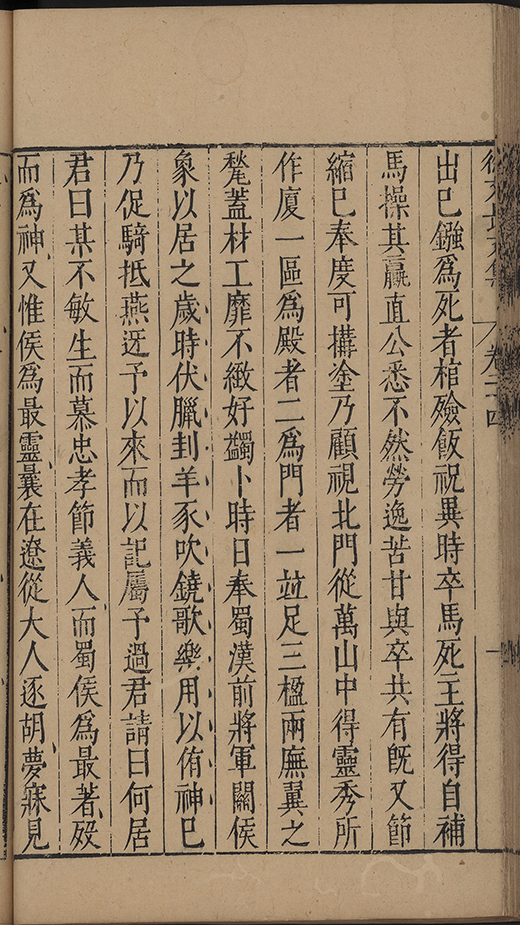 出已鏹爲死者棺殮飯祝異時卒馬死主將得自補
馬操其羸直公悉不然勞逸苦甘與卒共有旣又節
縮已奉度可搆塗乃顧視北門從萬山中得靈秀所
作廈一區爲殿者二爲門者一竝足三楹兩廡翼之
甃蓋材工靡不緻好蠲卜時日奉蜀漢前將軍關侯
象以居之歲時伏臘刲羊豕吹鐃歌樂用以侑神已
乃促騎抵燕迓予以來而以記屬予過君請曰何居
君曰某不敏生而慕忠孝節義人而蜀侯爲最著歿
而爲神又惟侯爲最靈曩在遼從大人逐胡夢寐見